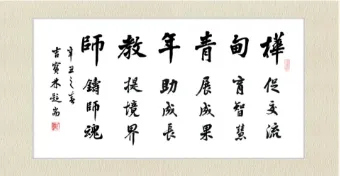 樺甸青年教師
促交流
育智慧
展成果
助成長
提境界
鑄師魂
辛丑之春
吉寶林題尚